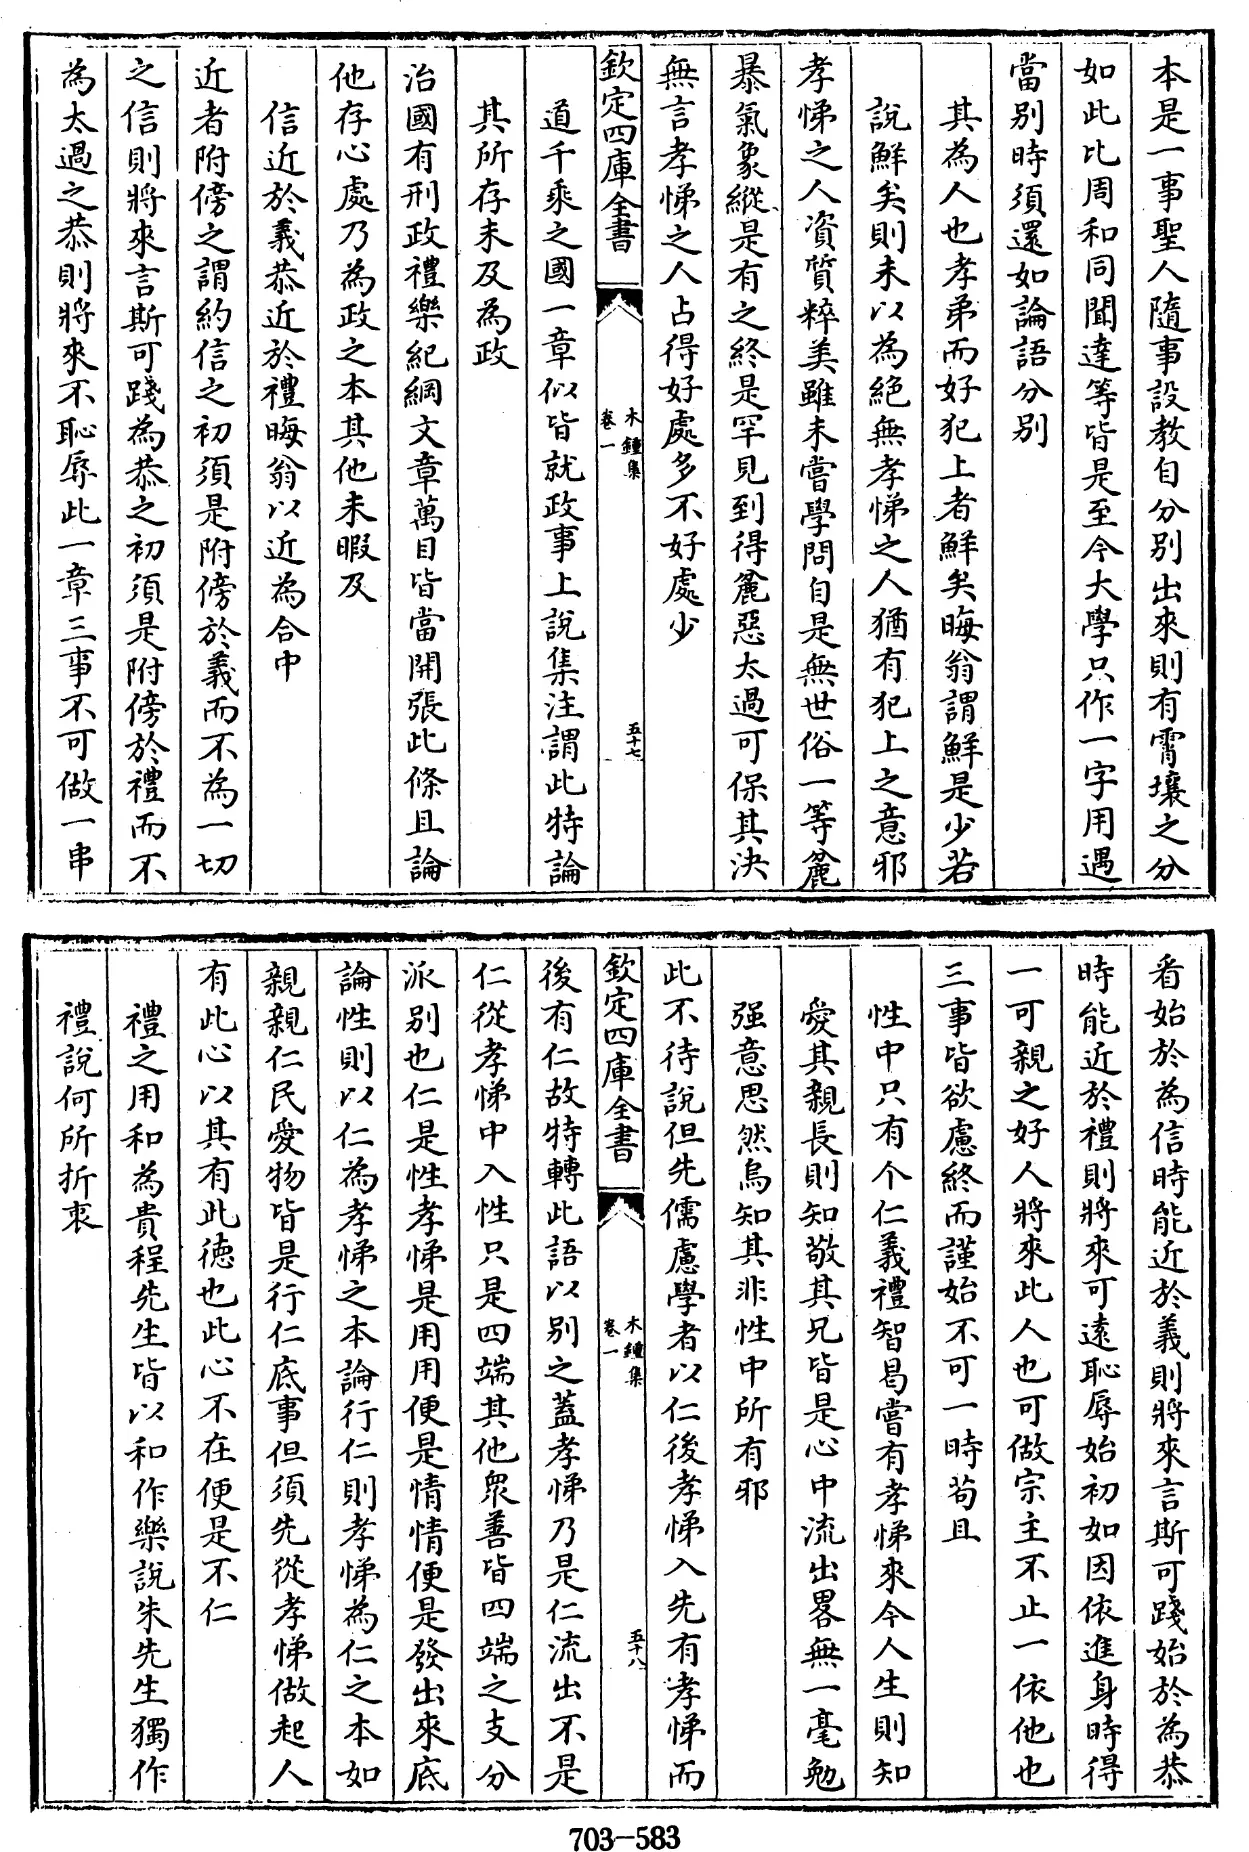 本是一事聖人隨事設教自分別出來則有霄壤之分
如此比周和同聞達等皆是至今大學只作一字用遇
當別時須還如論語分別
其為人也孝弟而好犯上者鮮矣晦翁謂鮮是少若
說鮮矣則未以為絕無孝悌之人猶有犯上之意邪
孝悌之人資質粹美雖未嘗學問自是無世俗一等麄
暴氣象縱是有之終是罕見到得麄惡太過可保其決
無言孝悌之人占得好處多不好處少
欽定四庫全書
木鐘集
卷一
五十七
道千乘之國一章似皆就政事上說集注謂此特論
其所存未及為政
治國有刑政禮樂紀綱文章萬目皆當開張此條且論
他存心處乃為政之本其他未暇及
信近於義恭近於禮晦翁以近為合中
近者附傍之謂約信之初須是附傍於義而不為一切
之信則將來言斯可踐為恭之初須是附傍於禮而不
為太過之恭則將來不恥辱此一章三事不可做一串
看始於為信時能近於義則將來言斯可踐始於為恭
時能近於禮則將來可遠恥辱始初如因依進身時得
一可親之好人將來此人也可做宗主不止一依他也
三事皆欲慮終而謹始不可一時茍且
性中只有个仁義禮智曷嘗有孝悌來今人生則知
愛其親長則知敬其兄皆是心中流出畧無一毫勉
强意思然烏知其非性中所有邪
此不待說但先儒慮學者以仁後孝悌入先有孝悌而
欽定四庫全書
木鐘集
卷一
五十八
後有仁故特轉此語以別之蓋孝悌乃是仁流出不是
仁從孝悌中入性只是四端其他衆善皆四端之支分
派别也仁是性孝悌是用用便是情情便是發出來底
論性則以仁為孝悌之本論行仁則孝悌為仁之本如
親親仁民愛物皆是行仁底事但須先從孝悌做起人
有此心以其有此德也此心不在便是不仁
禮之用和為貴程先生皆以和作樂說朱先生獨作
禮說何所折衷
703-583